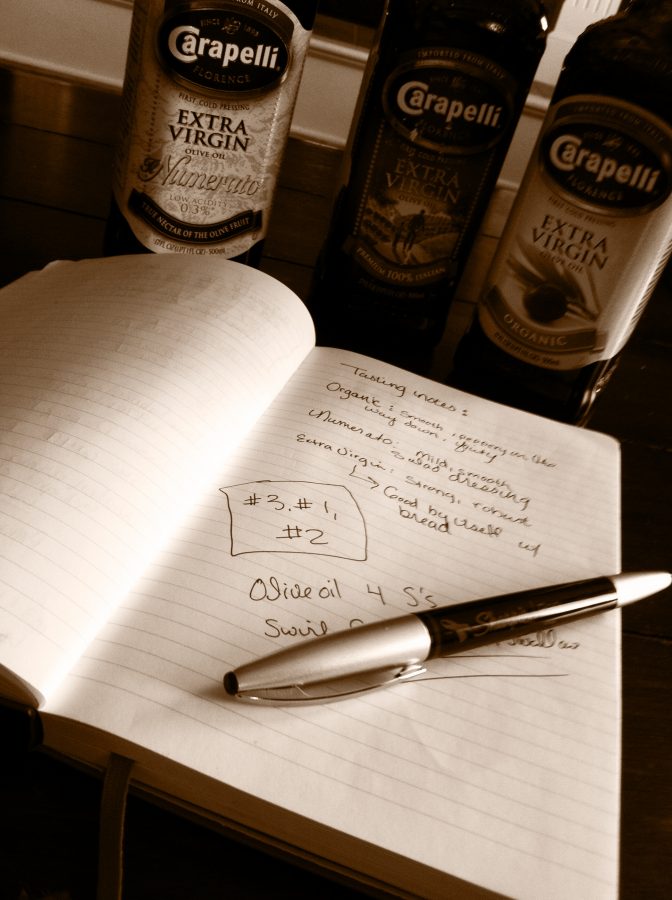 IMPORTED FROM ITALY
SINCE 1893
Carapelli
FLORENCE
FIRST COLD PRESSING
EXTRA
VIRGIN
OLIVE OIL
Il Numerato
LOW ACIDITY
0.3%
TRUE NECTAR OF THE OLIVE FRUIT
IMPORTED FROM ITALY
Carapelli
FIRST COLD PRESSING
EXTRA
VIRGIN
OLIVE OIL
PREMIUM 100% ITALIAN
IMPORTED FROM ITALY
Carapelli
FLORENCE
FIRST COLD PRESSING
EXTRA
VIRGIN
OLIVE OIL
ORGANIC
Tasting notes:
Organic: smooth, peppery on the
way down, fruity
Numerato: mild, smooth
salad dressing
Extra Virgin: Strong, robust
Good by itself w/
bread
#3, #1,
#2
Olive oil 4 S's
Swirl